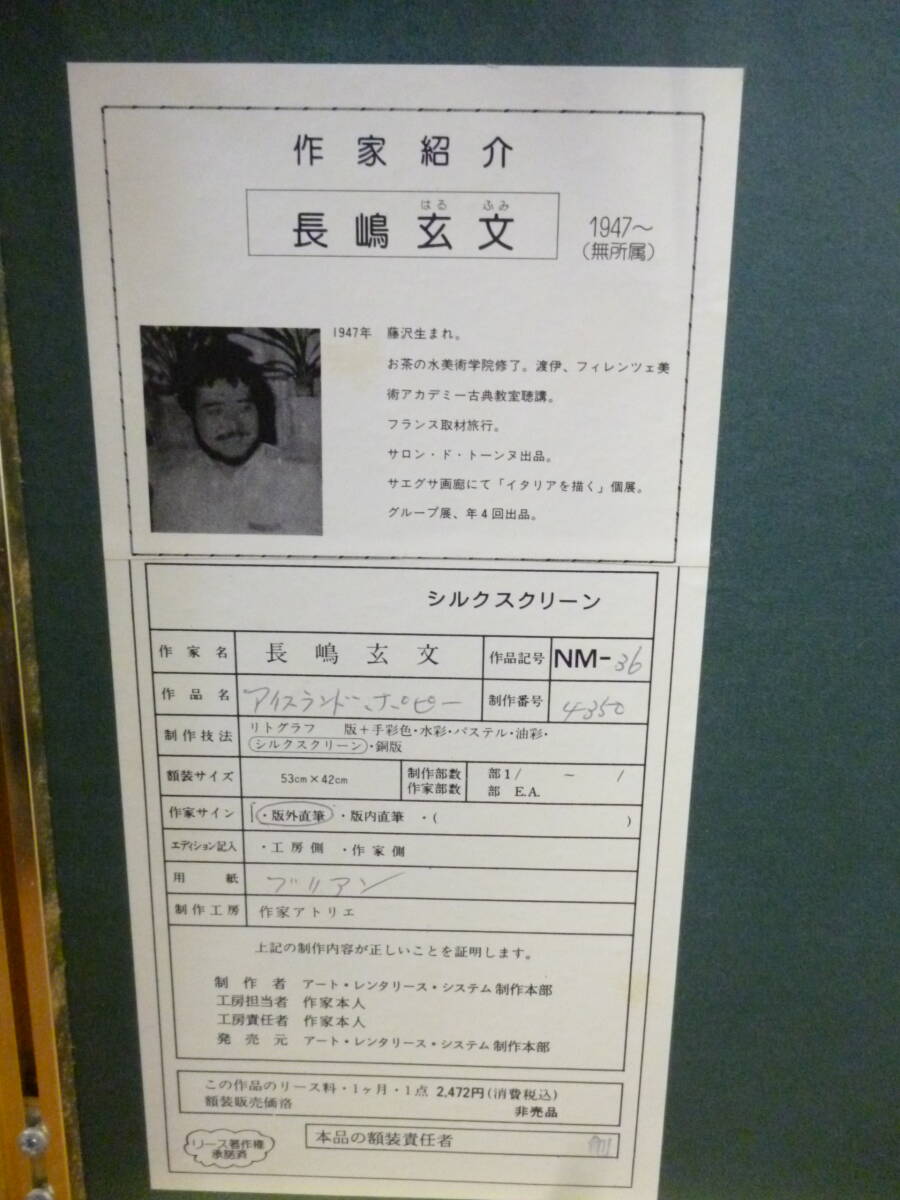 作家紹介
はる ふみ
長嶋玄文
1947～
(無所属)
1947年 藤沢生まれ。
お茶の水美術学院修了。渡伊、フィレンツェ美
術アカデミー古典教室聴講。
フランス取材旅行。
サロン・ド・トーンヌ出品。
サエグサ画廊にて「イタリアを描く」個展。
グループ展、年4回出品。
シルクスクリーン
作家名 長嶋玄文 作品記号 NM-36
作品名 アイスランドポピー 制作番号 4350
制作技法 リトグラフ 版＋手彩色・水彩・パステル・油彩・
シルクスクリーン・銅版
額装サイズ 53cm×42cm 制作部数 部1/ ～ /
作家部数 部 E.A.
作家サイン ・版外直筆 ・版内直筆 ・( )
エディション記入 ・工房側 ・作家側
用紙 ブリアン
制作工房 作家アトリエ
上記の制作内容が正しいことを証明します。
制作者 アート・レンタリース・システム制作本部
工房担当者 作家本人
工房責任者 作家本人
発売元 アート・レンタリース・システム制作本部
この作品のリース料・1ヶ月・1点 2,472円(消費税込)
額装販売価洛 非売品
リース著作権
承諾済
本品の額装責任者